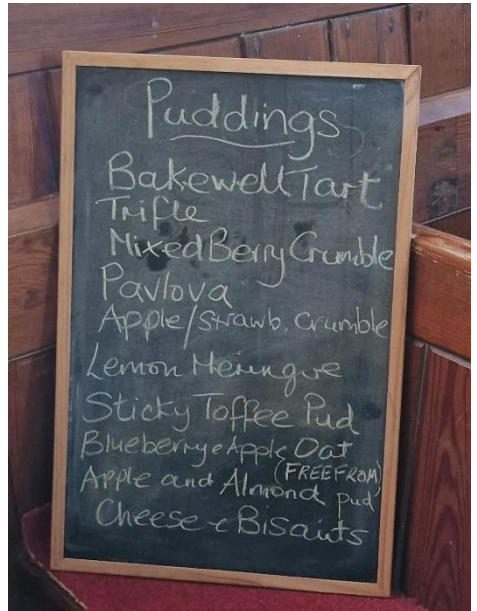 Puddings
Bakewell Tart
Trifle
Mixed Berry Crumble
Pavlova
Apple/strawb. Crumble
Lemon Meringue
Sticky Toffee Pud
Blueberry & Apple Oat
(FREE FROM)
Apple and Almond pud
Cheese & Biscuits